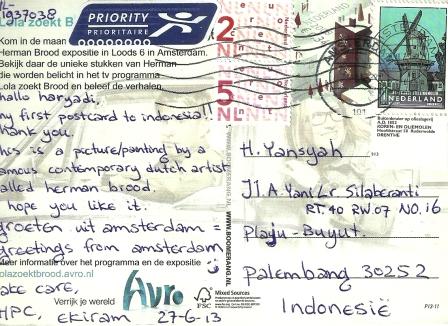 NL-
1937038
Lola zoekt B
PRIORITY
PRIORITAIRE
Kom in de maan
Herman Brood expositie in Loods 6 in Amsterdam.
Bekijk daar de unieke stukken van Herman
die worden belicht in het tv programma
Lola zoekt Brood en beleef de verhalen.
hallo haryadi,
my first postcard to indonesia!!
thank you.
this is a picture/painting by a
famous contemporary dutch artist
called herman brood.
i hope you like it.
groeten uit amsterdam =
greetings from amsterdam
Meer informatie over het programma en de expositie
lolazoektbrood.avro.nl
take care,
HPC, ekiram 27-6-13
Verrijk je wereld
Avro
FSC
Mixed Sources
WWW.BOOMERANG.NL
2
NL
5
NL
101
NEDERLAND
Buitendelder op olieslagerij
A.D. 1852
KOREN- EN OLIEMOLEN
DRENTHE
H. Yansyah
Jl. A. Yani/Lr. Silaberanti
RT. 40 RW. 07 NO. 16
Plaju - Buyut.
Palembang 30252
Indonesië
P13-11